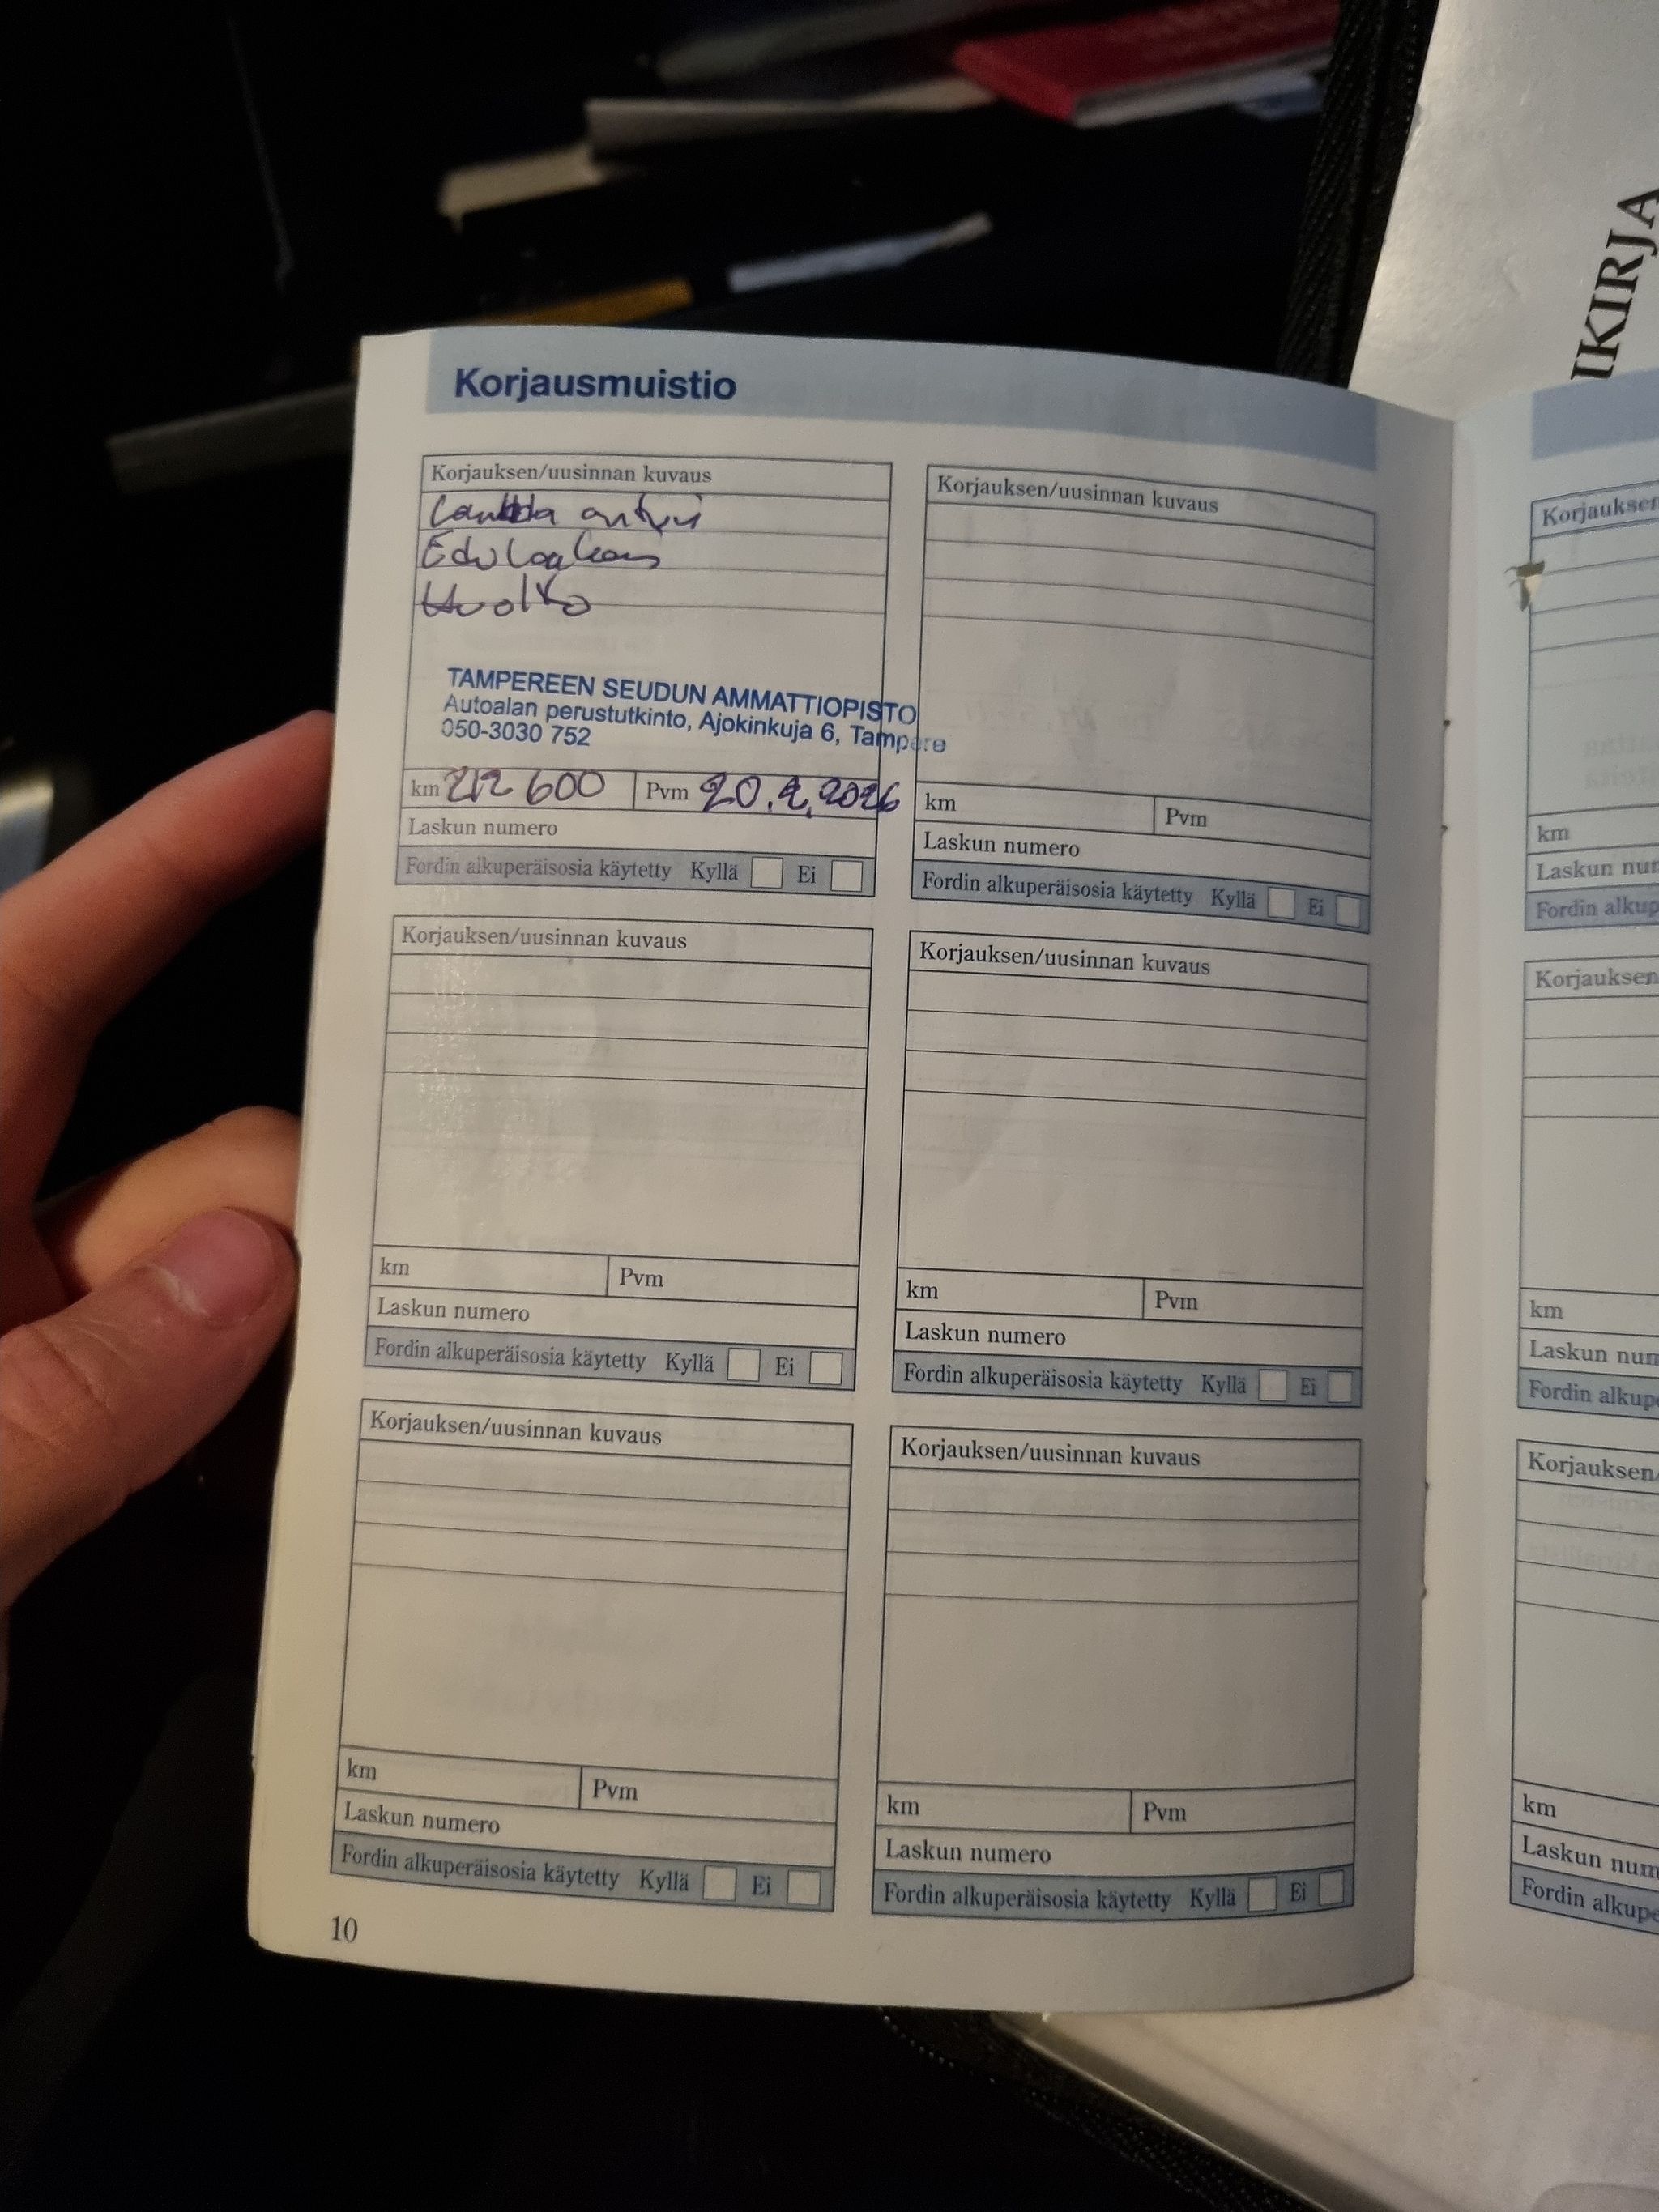 IKIRJA
Korjausmuistio
Korjauksen/uusinnan kuvaus
Lambda anturi
Etu laakeri
Huolto
TAMPEREEN SEUDUN AMMATTIOPISTO
Autoalan perustutkinto, Ajokinkuja 6, Tampere
050-3030 752
km 212 600 Pvm 20.2.2026
Laskun numero
Fordin alkuperäisosia käytetty Kyllä Ei
Korjauksen/uusinnan kuvaus
km Pvm
Laskun numero
Fordin alkuperäisosia käytetty Kyllä Ei
Korjauksen/uusinnan kuvaus
km Pvm
Laskun numero
Fordin alkuperäisosia käytetty Kyllä Ei
Korjauksen/uusinnan kuvaus
km Pvm
Laskun numero
Fordin alkuperäisosia käytetty Kyllä Ei
Korjauksen/uusinnan kuvaus
km Pvm
Laskun numero
Fordin alkuperäisosia käytetty Kyllä Ei
Korjauksen/uusinnan kuvaus
km Pvm
Laskun numero
Fordin alkuperäisosia käytetty Kyllä Ei
10
Korjauksen
km
Laskun num
Fordin alkup
Korjauksen
km
Laskun num
Fordin alkupe
Korjauksen/
km
Laskun num
Fordin alkupe